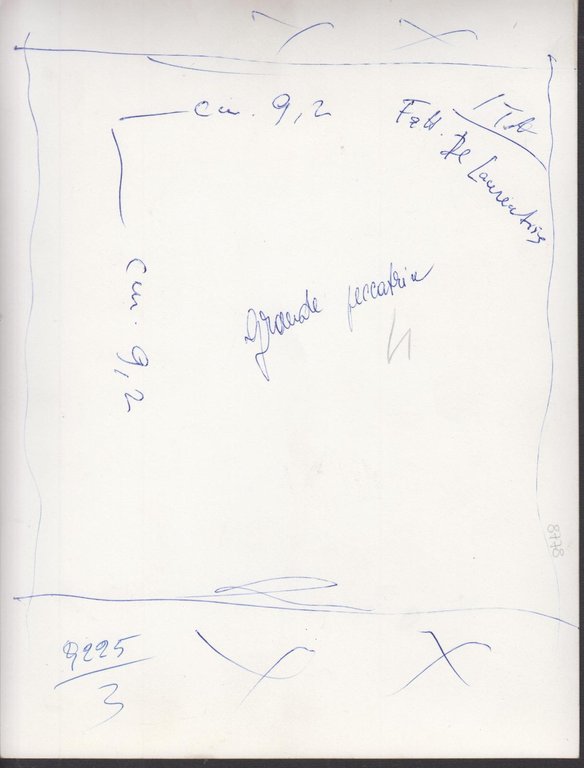 cm. 9,2
ITA
De Laurentiis
cm. 9,2
Grande peccatrice
8778
9225
3